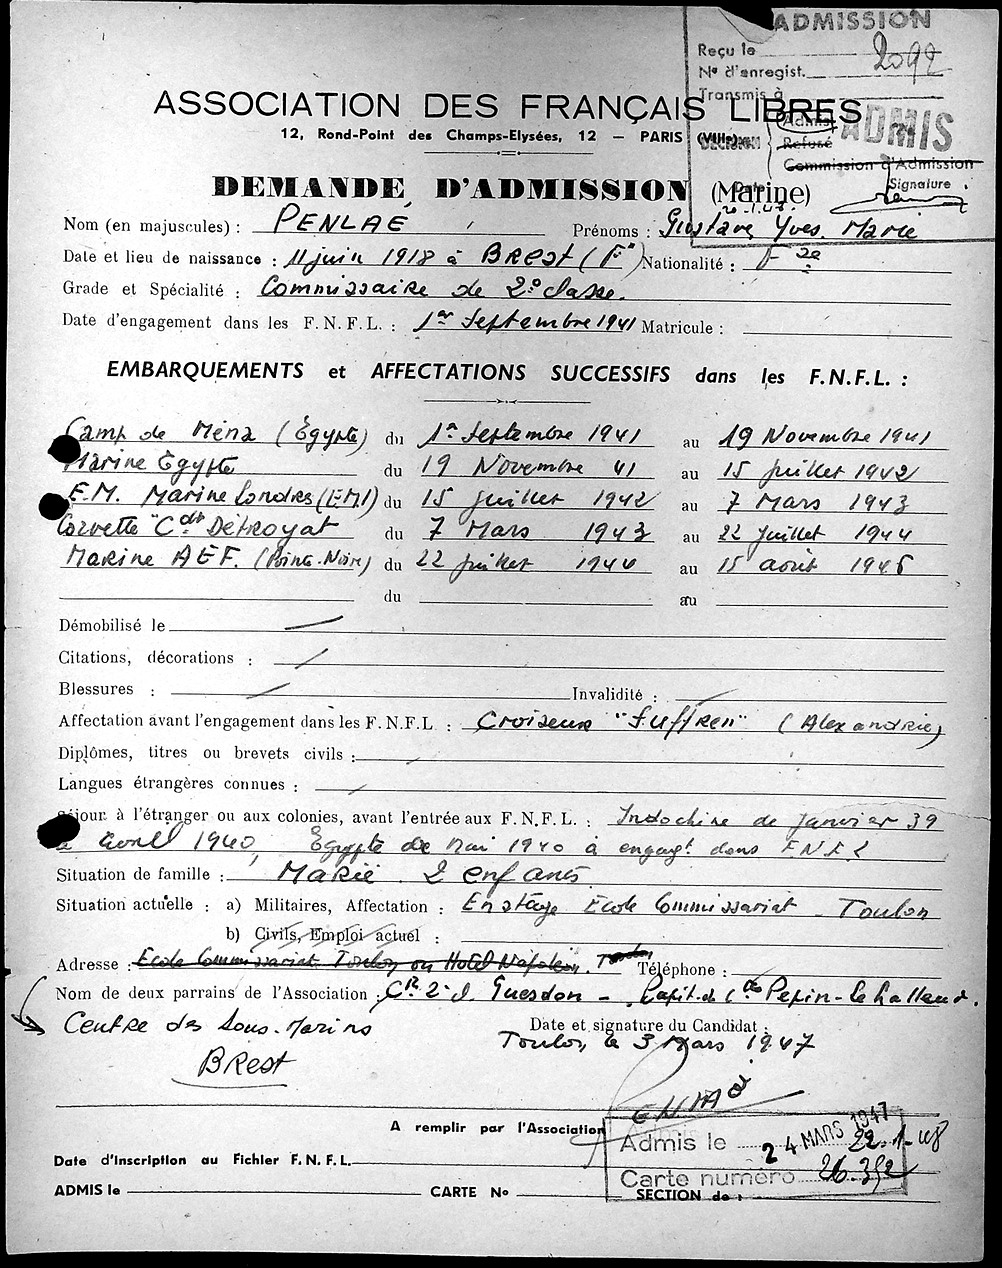 ADMISSION
Reçu le
No d'enregist. 2092
Transmis à
ASSOCIATION DES FRANÇAIS LIBRES
12, Rond-Point des Champs-Elysées, 12 — PARIS (VIIIe)
DECISION { Admis
Refusé
Commission d'Admission
ADMIS
Date
Signature
DEMANDE D'ADMISSION (Marine)
Nom (en majuscules) : PENLAE Prénoms : Gustave Yves Marie
Date et lieu de naissance : 11 juin 1918 à BREST (Fre) Nationalité : Fse
Grade et Spécialité : Commissaire de 2e classe.
Date d'engagement dans les F.N.F.L. : 1er Septembre 1941 Matricule :
EMBARQUEMENTS et AFFECTATIONS SUCCESSIFS dans les F.N.F.L. :
Camp de Mena (Égypte) du 1er Septembre 1941 au 19 Novembre 1941
Marine Egypte du 19 Novembre 41 au 15 juillet 1942
E.M. Marine Londres (EM1) du 15 juillet 1942 au 7 Mars 1943
Corvette "Cdt Détroyat du 7 Mars 1943 au 22 juillet 1944
Marine AEF. (Pointe-Noire) du 22 juillet 1944 au 15 août 1945
du au
Démobilisé le
Citations, décorations :
Blessures : Invalidité :
Affectation avant l'engagement dans les F.N.F.L : Croiseur "Suffren" (Alexandrie)
Diplômes, titres ou brevets civils :
Langues étrangères connues :
Séjour à l'étranger ou aux colonies, avant l'entrée aux F.N.F.L. : Indochine de janvier 39
à avril 1940, Egypte de Mai 1940 à engagt. dans FNFL
Situation de famille : Marié 2 enfants
Situation actuelle : a) Militaires, Affectation : En stage École Commissariat - Toulon
b) Civils, Emploi actuel :
Adresse : Ecole Commissariat Toulon ou Hotel Napoléon, Toulon Téléphone :
Nom de deux parrains de l'Association : CR. 2e cl. Guesdon - Capit. de Cte Pepin-Lehalleur.
Centre des Sous-Marins
BREST
Date et signature du Candidat :
Toulon, le 3 Mars 1947
A remplir par l'Association
Admis le 24 MARS 1947 22-1-48
Date d'inscription au Fichier F.N.F.L.
Carte numéro 26.352
ADMIS le CARTE No SECTION de :